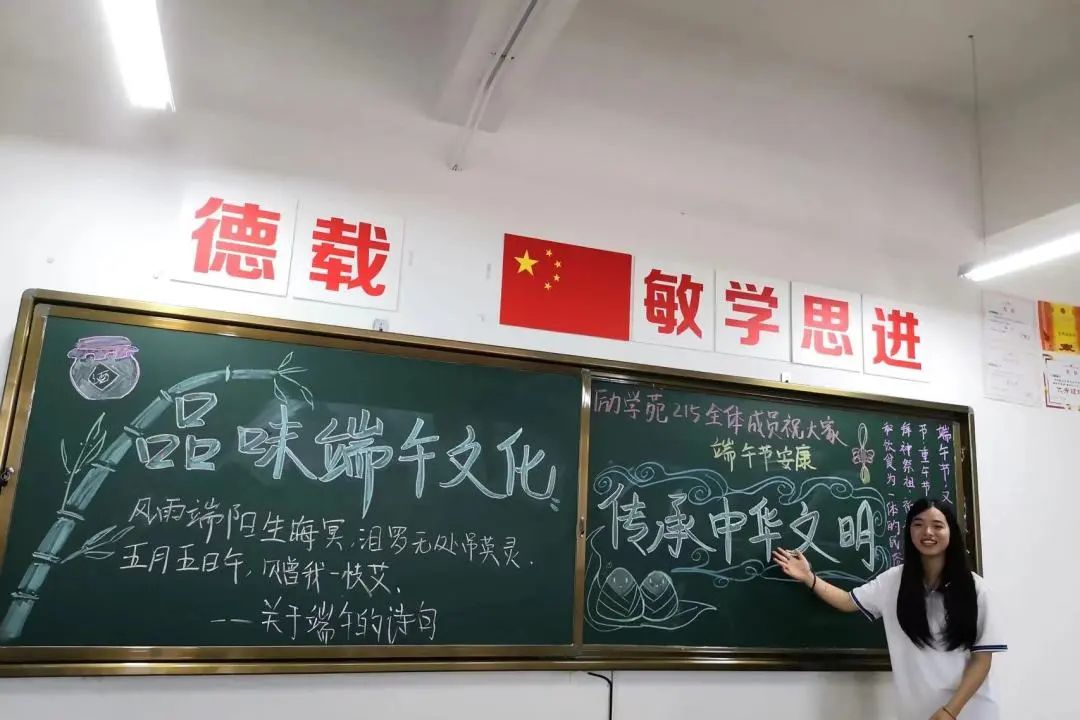 德载 敏学思进
酒
品味端午文化
风雨端阳生晦冥,汨罗无处吊英灵.
五月五日午,赠我一枝艾.
——关于端午的诗句
励学苑215全体成员祝大家
端午节安康
传承中华文明
端午节,又
节·重午节
拜神祭祖·
和饮食为一体的民